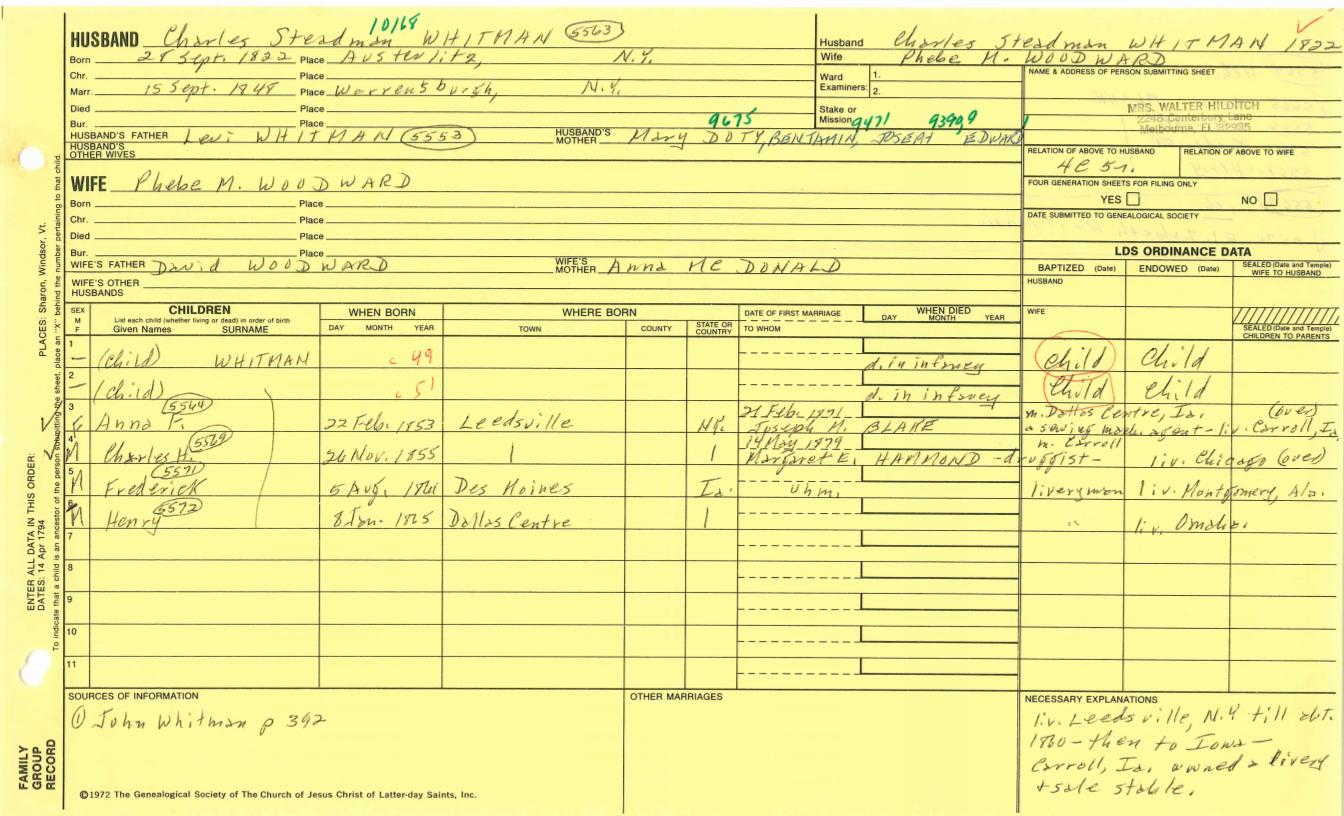 10/68
HUSBAND Charles Steadman WHITMAN 5563
Born 28 Sept. 1822 Place Austerlitz, N.Y.
Chr. Place
Marr 15 Sept. 1848 Place Warrensburgh, N.Y.
Died Place
Bur. Place
HUSBAND'S FATHER Levi WHITMAN 5553 HUSBAND'S MOTHER Mary DOTY, BENJAMIN, JOSEPH EDWARD
9675 9471 1
HUSBAND'S OTHER WIVES
Husband Charles Steadman WHITMAN 1822
Wife Phebe M. WOODWARD
Ward Examiners: 1.
2.
Stake or Mission
NAME & ADDRESS OF PERSON SUBMITTING SHEET
MRS. WALTER HILDITCH
2248 Canterbury Lane
Melbourne, FL 32935
RELATION OF ABOVE TO HUSBAND RELATION OF ABOVE TO WIFE
4C 5r.
FOUR GENERATION SHEETS FOR FILING ONLY
YES NO
DATE SUBMITTED TO GENEALOGICAL SOCIETY
WIFE Phebe M. WOODWARD
Born Place
Chr. Place
Died Place
Bur. Place
WIFE'S FATHER David WOODWARD WIFE'S MOTHER Anna Mc DONALD
WIFE'S OTHER HUSBANDS
LDS ORDINANCE DATA
BAPTIZED (Date) ENDOWED (Date) SEALED (Date and Temple) WIFE TO HUSBAND
HUSBAND
WIFE
SEALED (Date and Temple) CHILDREN TO PARENTS
SEX M F CHILDREN WHEN BORN WHERE BORN DATE OF FIRST MARRIAGE WHEN DIED
List each child (whether living or dead) in order of birth
Given Names SURNAME DAY MONTH YEAR TOWN COUNTY STATE OR COUNTRY TO WHOM DAY MONTH YEAR
1 — (Child) WHITMAN c 49 d. in infancy child Child
2 — (Child) c 51 d. in infancy Child Child
3 F Anna F. 5564 22 Feb. 1853 Leedsville N.Y. 21 Feb. 1871 Joseph M. BLAKE m. Dallas Centre, Ia. (over)
a sewing mach. agent - liv. Carroll, Ia
4 M Charles H. 5569 26 Nov. 1855 14 May 1879 m. Carroll
Margaret E. HAMMOND - druggist - liv. Chicago (over)
5 M Frederick 5571 5 Aug. 1861 Des Moines Ia. unm. liveryman liv. Montgomery, Ala.
6 M Henry 5572 8 Jan. 1865 Dallas Centre " liv. Omaha.
7
8
9
10
11
SOURCES OF INFORMATION
① John Whitman p 392
OTHER MARRIAGES
NECESSARY EXPLANATIONS
liv. Leedsville, N.Y till abt.
1860 - then to Iowa -
Carroll, Ia. owned a livery
+ sale stable.
©1972 The Genealogical Society of The Church of Jesus Christ of Latter-day Saints, Inc.
PLACES: Sharon, Windsor, Vt.
ENTER ALL DATA IN THIS ORDER:
DATES: 14 Apr 1794
To indicate that a child is an ancestor of the person submitting the sheet, place an "X" behind the number pertaining to that child.
FAMILY GROUP RECORD